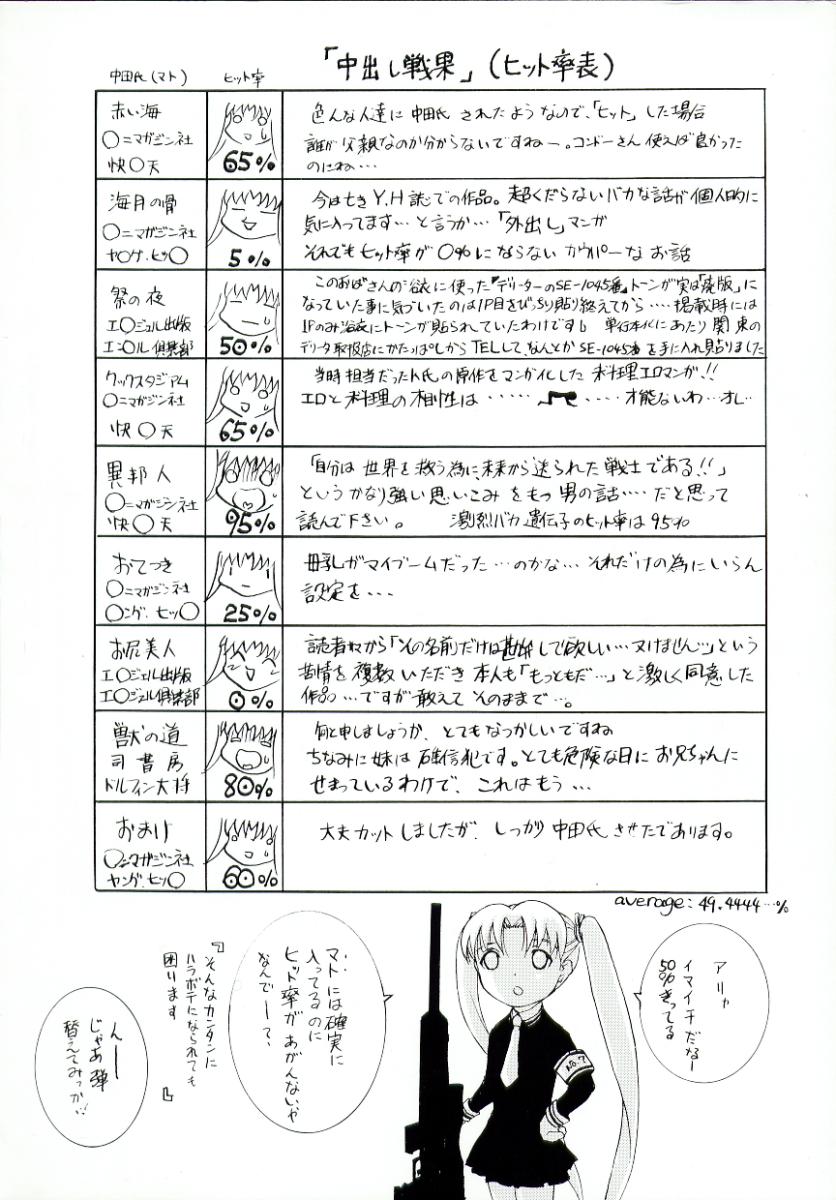 「中出し戦果」(ヒット率表)
中田氏(マト)
ヒット率
赤い海
〇ニマガジン社
快〇天
65%
色んな人達に中田氏されたようなので、「ヒット」した場合
誰が父親なのか分からないですねー。コンドーさん使えば良かった
のにね…
海月の骨
〇ニマガジン社
ヤ〇グ.ヒッ〇
5%
今は亡きY.H誌での作品。超くだらないバカな話が個人的に
気に入ってます…と言うか…「外出し」マンガ
それでもヒット率が0%にならないカウパーなお話
祭の夜
エ〇ジェル出版
エン〇ル倶楽部
50%
このおばさんの浴衣に使った『デリーターのSE-1045番』トーンが実は「廃版」に
なっていた事に気づいたのは1P目をびっちり貼り終えてから…掲載時には
1Pのみ浴衣にトーンが貼られていたわけです 単行本化にあたり関東の
デリータ取扱店にかたっぱしからTELして、なんとかSE-1045番を手に入れ貼りました
クックスタジアム
〇ニマガジン社
快〇天
65%
当時担当だったト氏の原作をマンガ化した料理エロマンガ!!
エロと料理の相性は・・・・・ ・・・・才能ないわ…オレ…
異邦人
〇ニマガジン社
快〇天
95%
「自分は世界を救う為に未来から送られた戦士である!!」
というかなり強い思いこみをもつ男の話…だと思って
読んで下さい。 激烈バカ遺伝子のヒット率は95%
おてつき
〇ニマガジン社
〇ング.ヒッ〇
25%
母乳がマイブームだった…のかな…それだけの為にいらん
設定を…
お尻美人
エ〇ジェル出版
エ〇ジェル倶楽部
0%
読者様から「その名前だけは勘弁して欲しい…ヌけません…」という
苦情を複数いただき本人も「もっともだ…」と激しく同意した
作品…ですが敢えてそのままで…。
獣の道
司書房
ドルフィン大将
80%
何と申しましょうか、とてもなつかしいですね
ちなみに妹は確信犯です。とても危険な日にお兄ちゃんに
せまっているわけで、これはもう…
おまけ
〇ニマガジン社
ヤング.ヒッ〇
60%
大丈カットしましたが、しっかり中田氏させたであります。
average: 49.4444…%
アリャ
イマイチだなー
50%きってる
マトには確実に
入ってるのに
ヒット率が
あがんないや
なんでーて、
『そんなカンタンに
ハラボテになられても
困ります』
んー
じゃあ弾
替えてみっか…